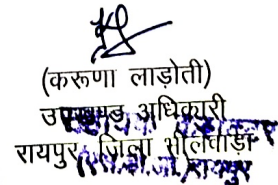 (करूणा लाड़ोती)
उपखण्ड अधिकारी
रायपुर जिला भीलवाड़ा